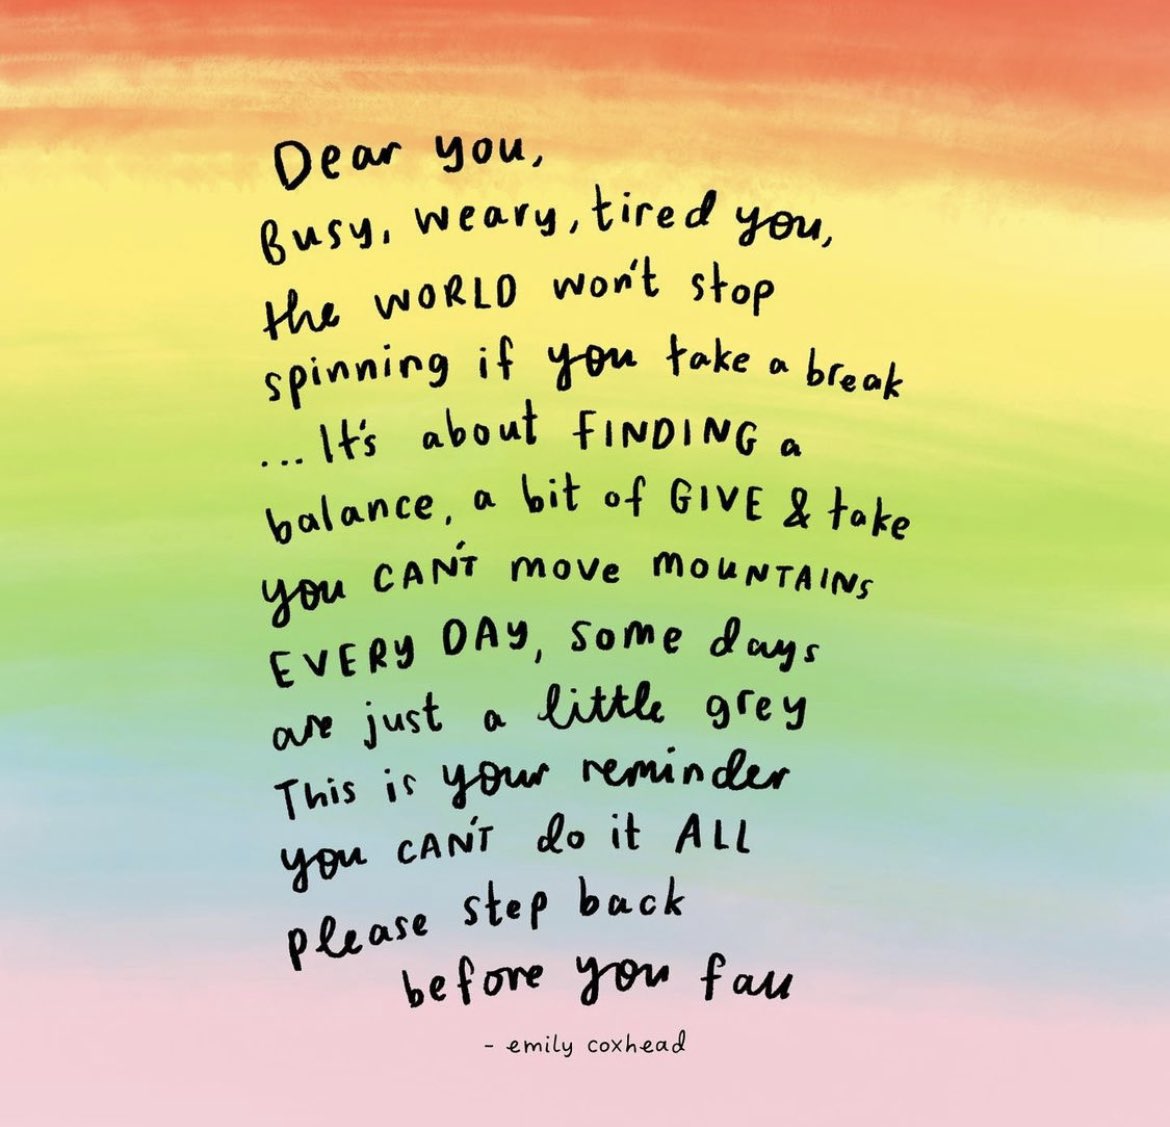 Dear you,
Busy, weary, tired you,
the WORLD won't stop
spinning if you take a break
...It's about FINDING a
balance, a bit of GIVE & take
you CAN'T move MOUNTAINS
EVERY DAY, some days
are just a little grey
This is your reminder
you CAN'T do it ALL
please step back
before you fall
- emily coxhead